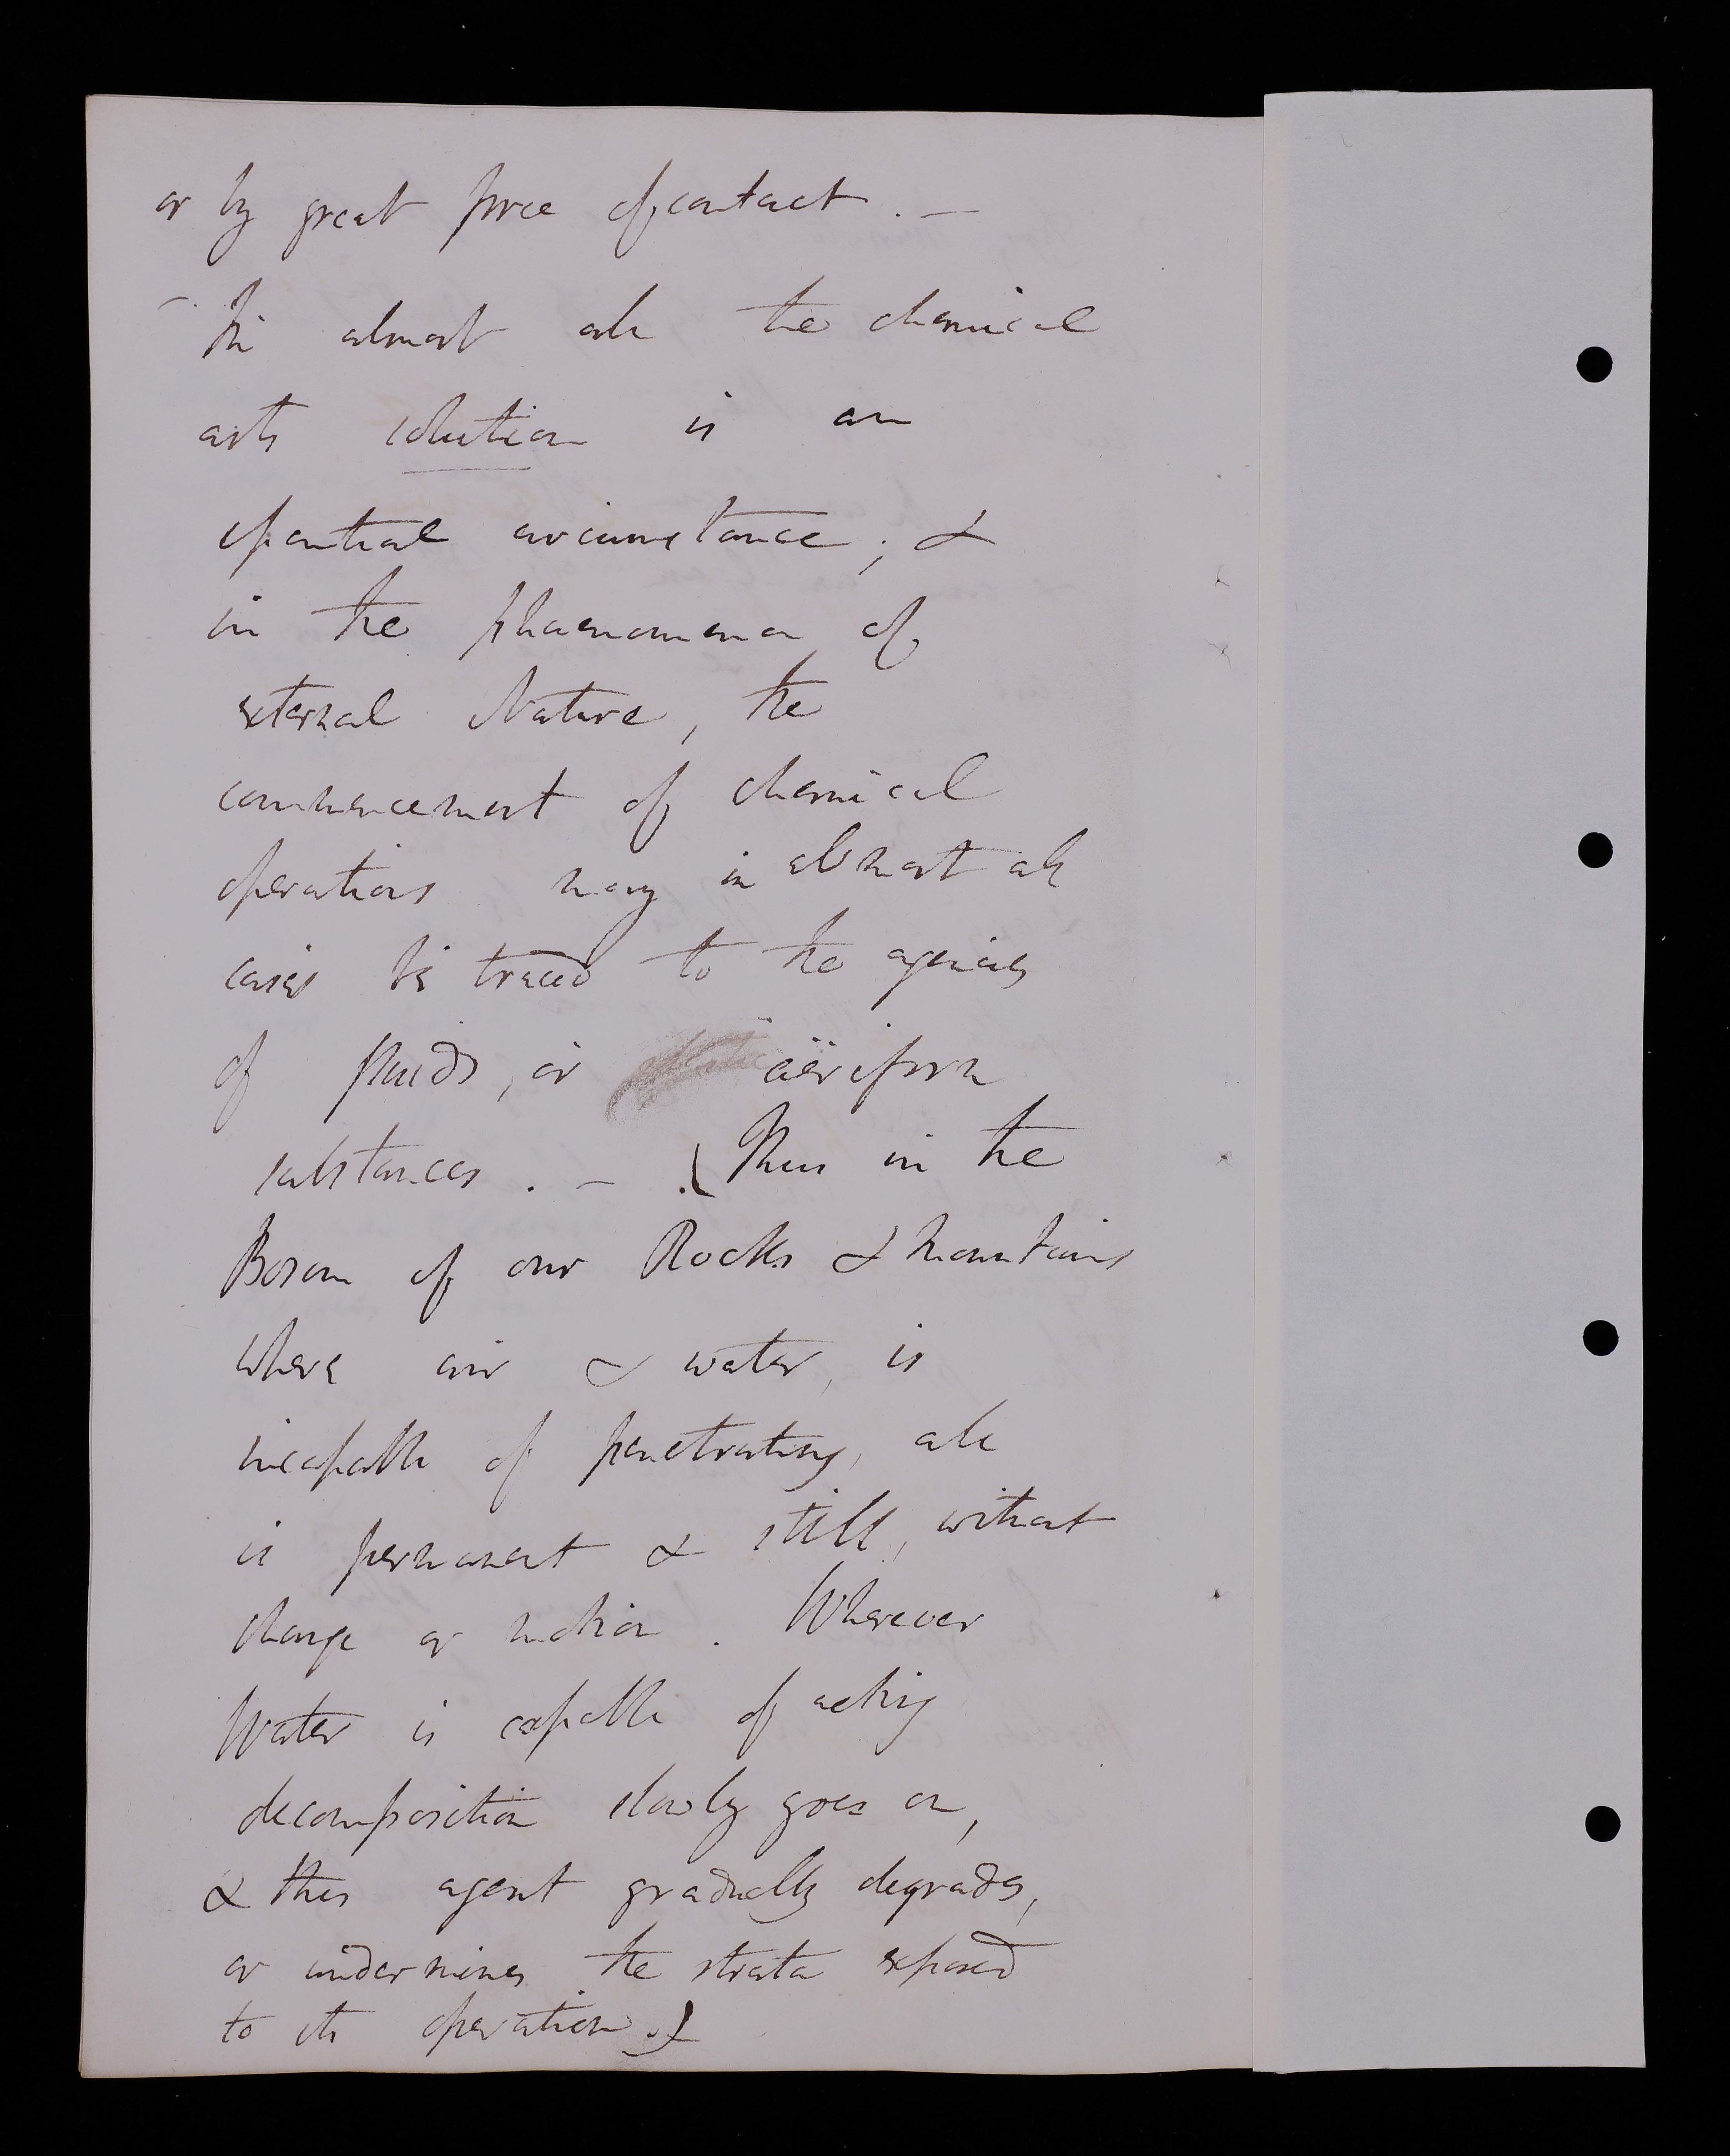 or by great force of contact. —
— In almost all the chemical
arts solution is an
essential circumstance; &
in the phaenomena of
external Nature, the
commencement of chemical
operations may in almost all
cases be traced to the agencies
of fluids, or aëriform
substances. — (Thus in the
Bosom of our Rocks & Mountains
where air & water, is
incapable of penetrating, all
is permanent & still, without
change or motion. Wherever
Water is capable of acting
decomposition slowly goes on,
& this agent gradually degrades,
or undermines the strata exposed
to its operation.)